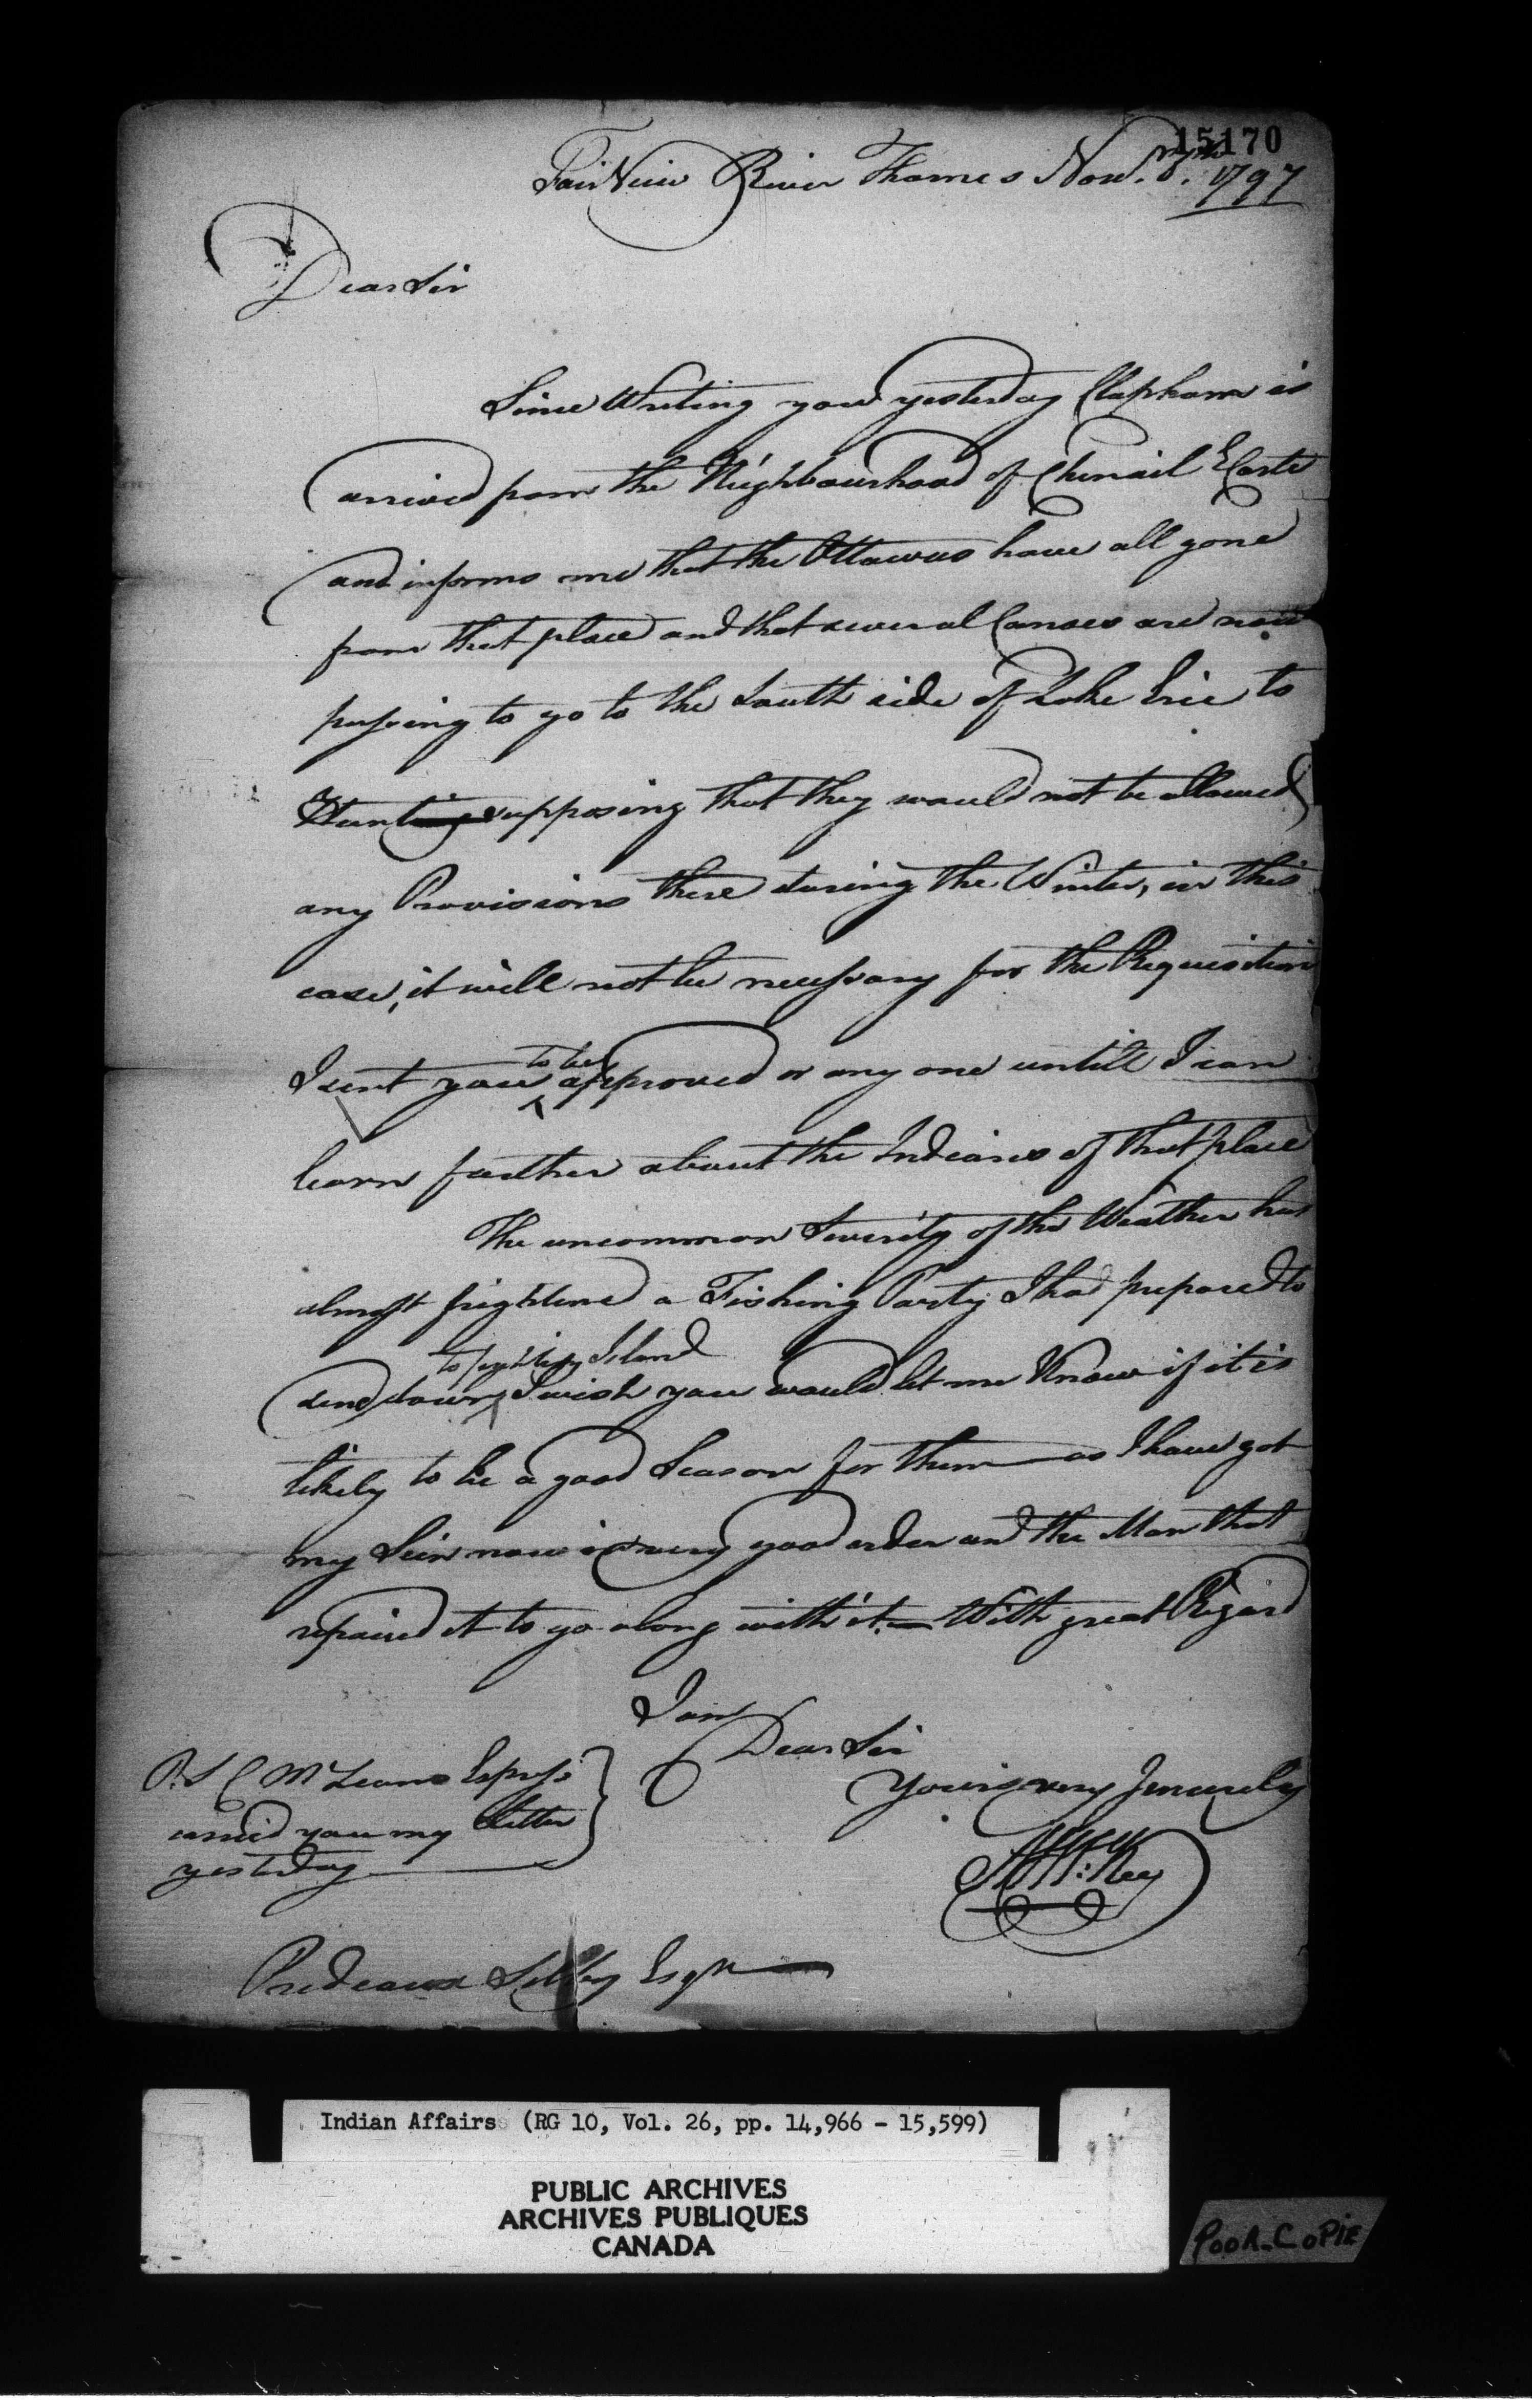 15170
Fair View River Thames Novr. 1797
Dear Sir
Since Writing you yesterday Clapham is
arrived from the Neighbourhood of Chenail Ecarte
and informs me that the Ottawas have all gone
from that place and that several Canoes are now
passing to go to the South side of Lake Erie to
Hunt supposing that they would not be allowed
any Provisions there during the Winter, in this
case, it will not be necessary for the Requisition
I sent you to be approved or any one untill I can
learn further about the Indians of that place
The uncommon Severity of the Weather has
almost frightened a Fishing Party I had prepared to
send down to fighting Island I wish you would let me Know if it is
likely to be a good Season for them as I have got
my Sein now in very good order and the Man that
repaired it to go along with it. — With great Regard
I am
Dear Sir
Yours very Sincerely
A McKee
P.S. McLeans Express
carried you my Letter
yesterday
Prideaux Selby Esqr
Indian Affairs (RG 10, Vol. 26, pp. 14,966 - 15,599)
PUBLIC ARCHIVES
ARCHIVES PUBLIQUES
CANADA
POOR COPIE